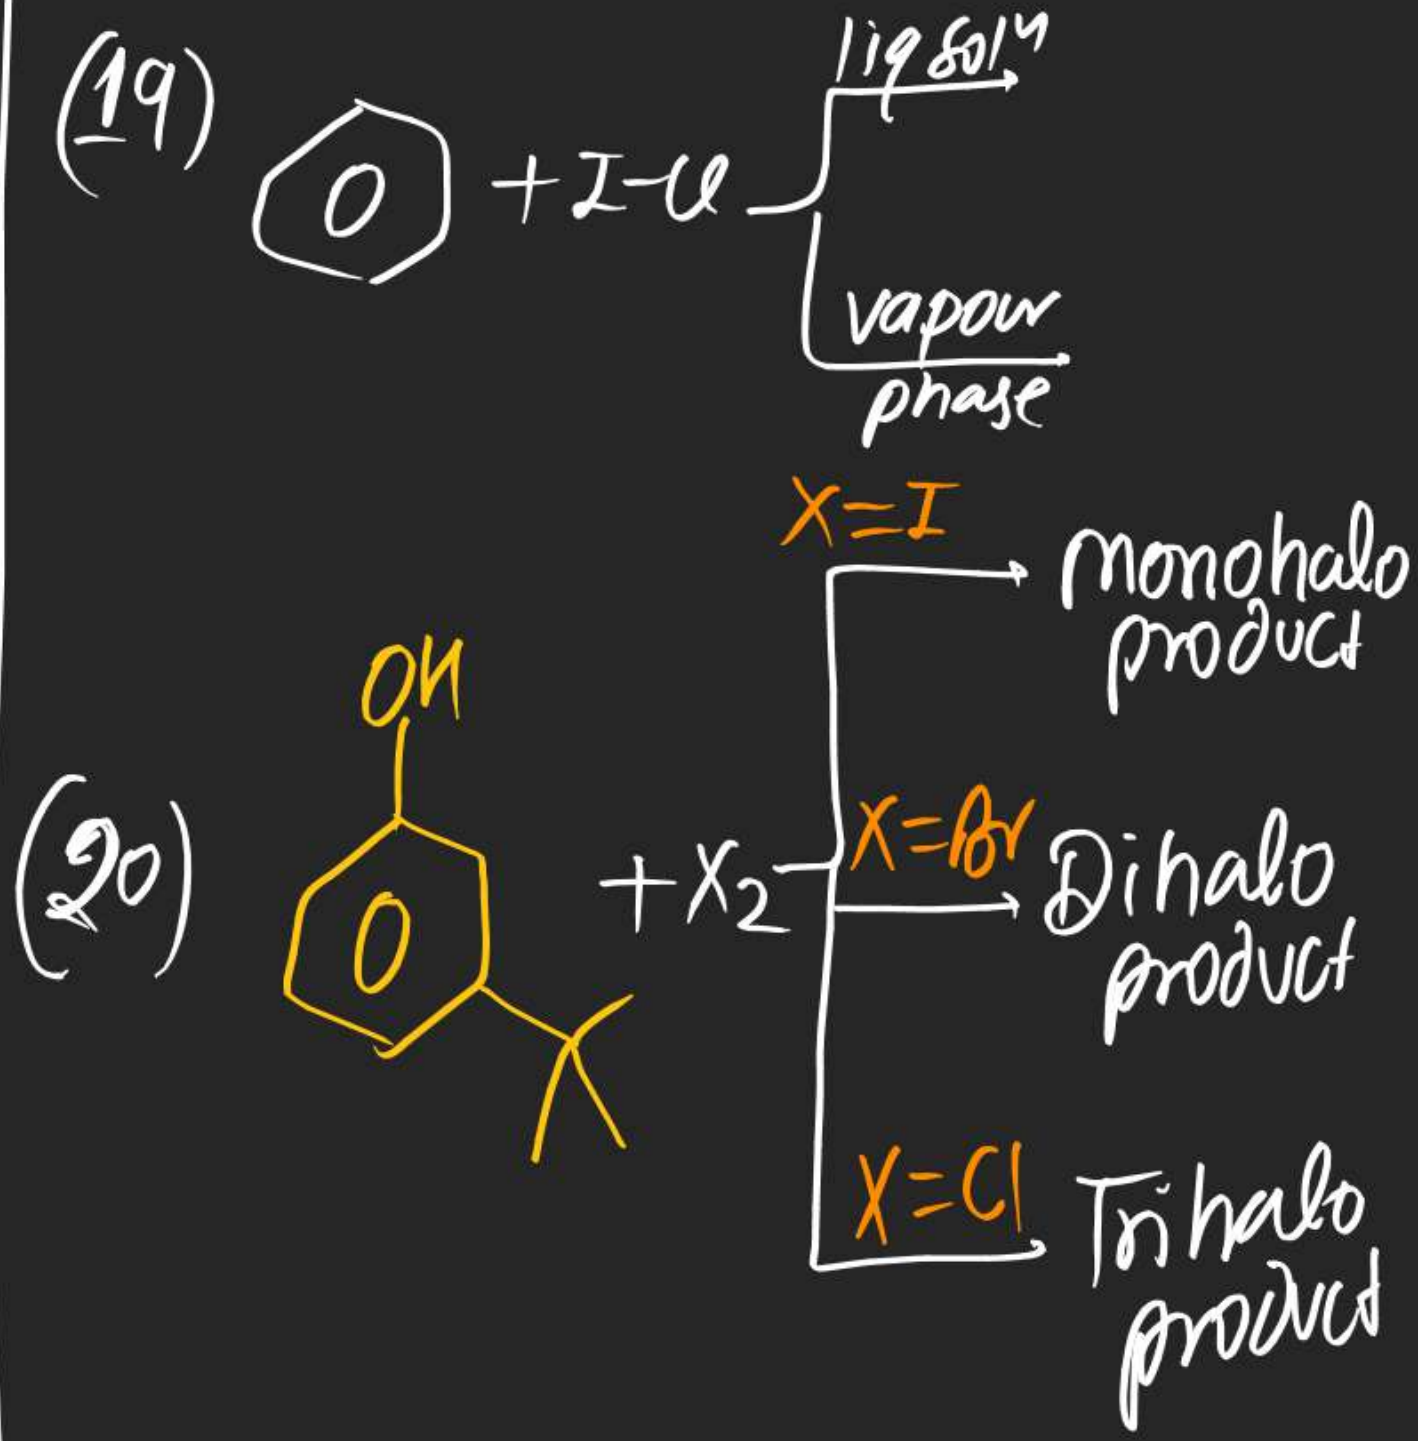 (19)
+ I-Cl
liq soln
vapour
phase
X=I
monohalo
product
OH
(20)
+ X2
X=Br
Dihalo
product
X=Cl
Trihalo
product